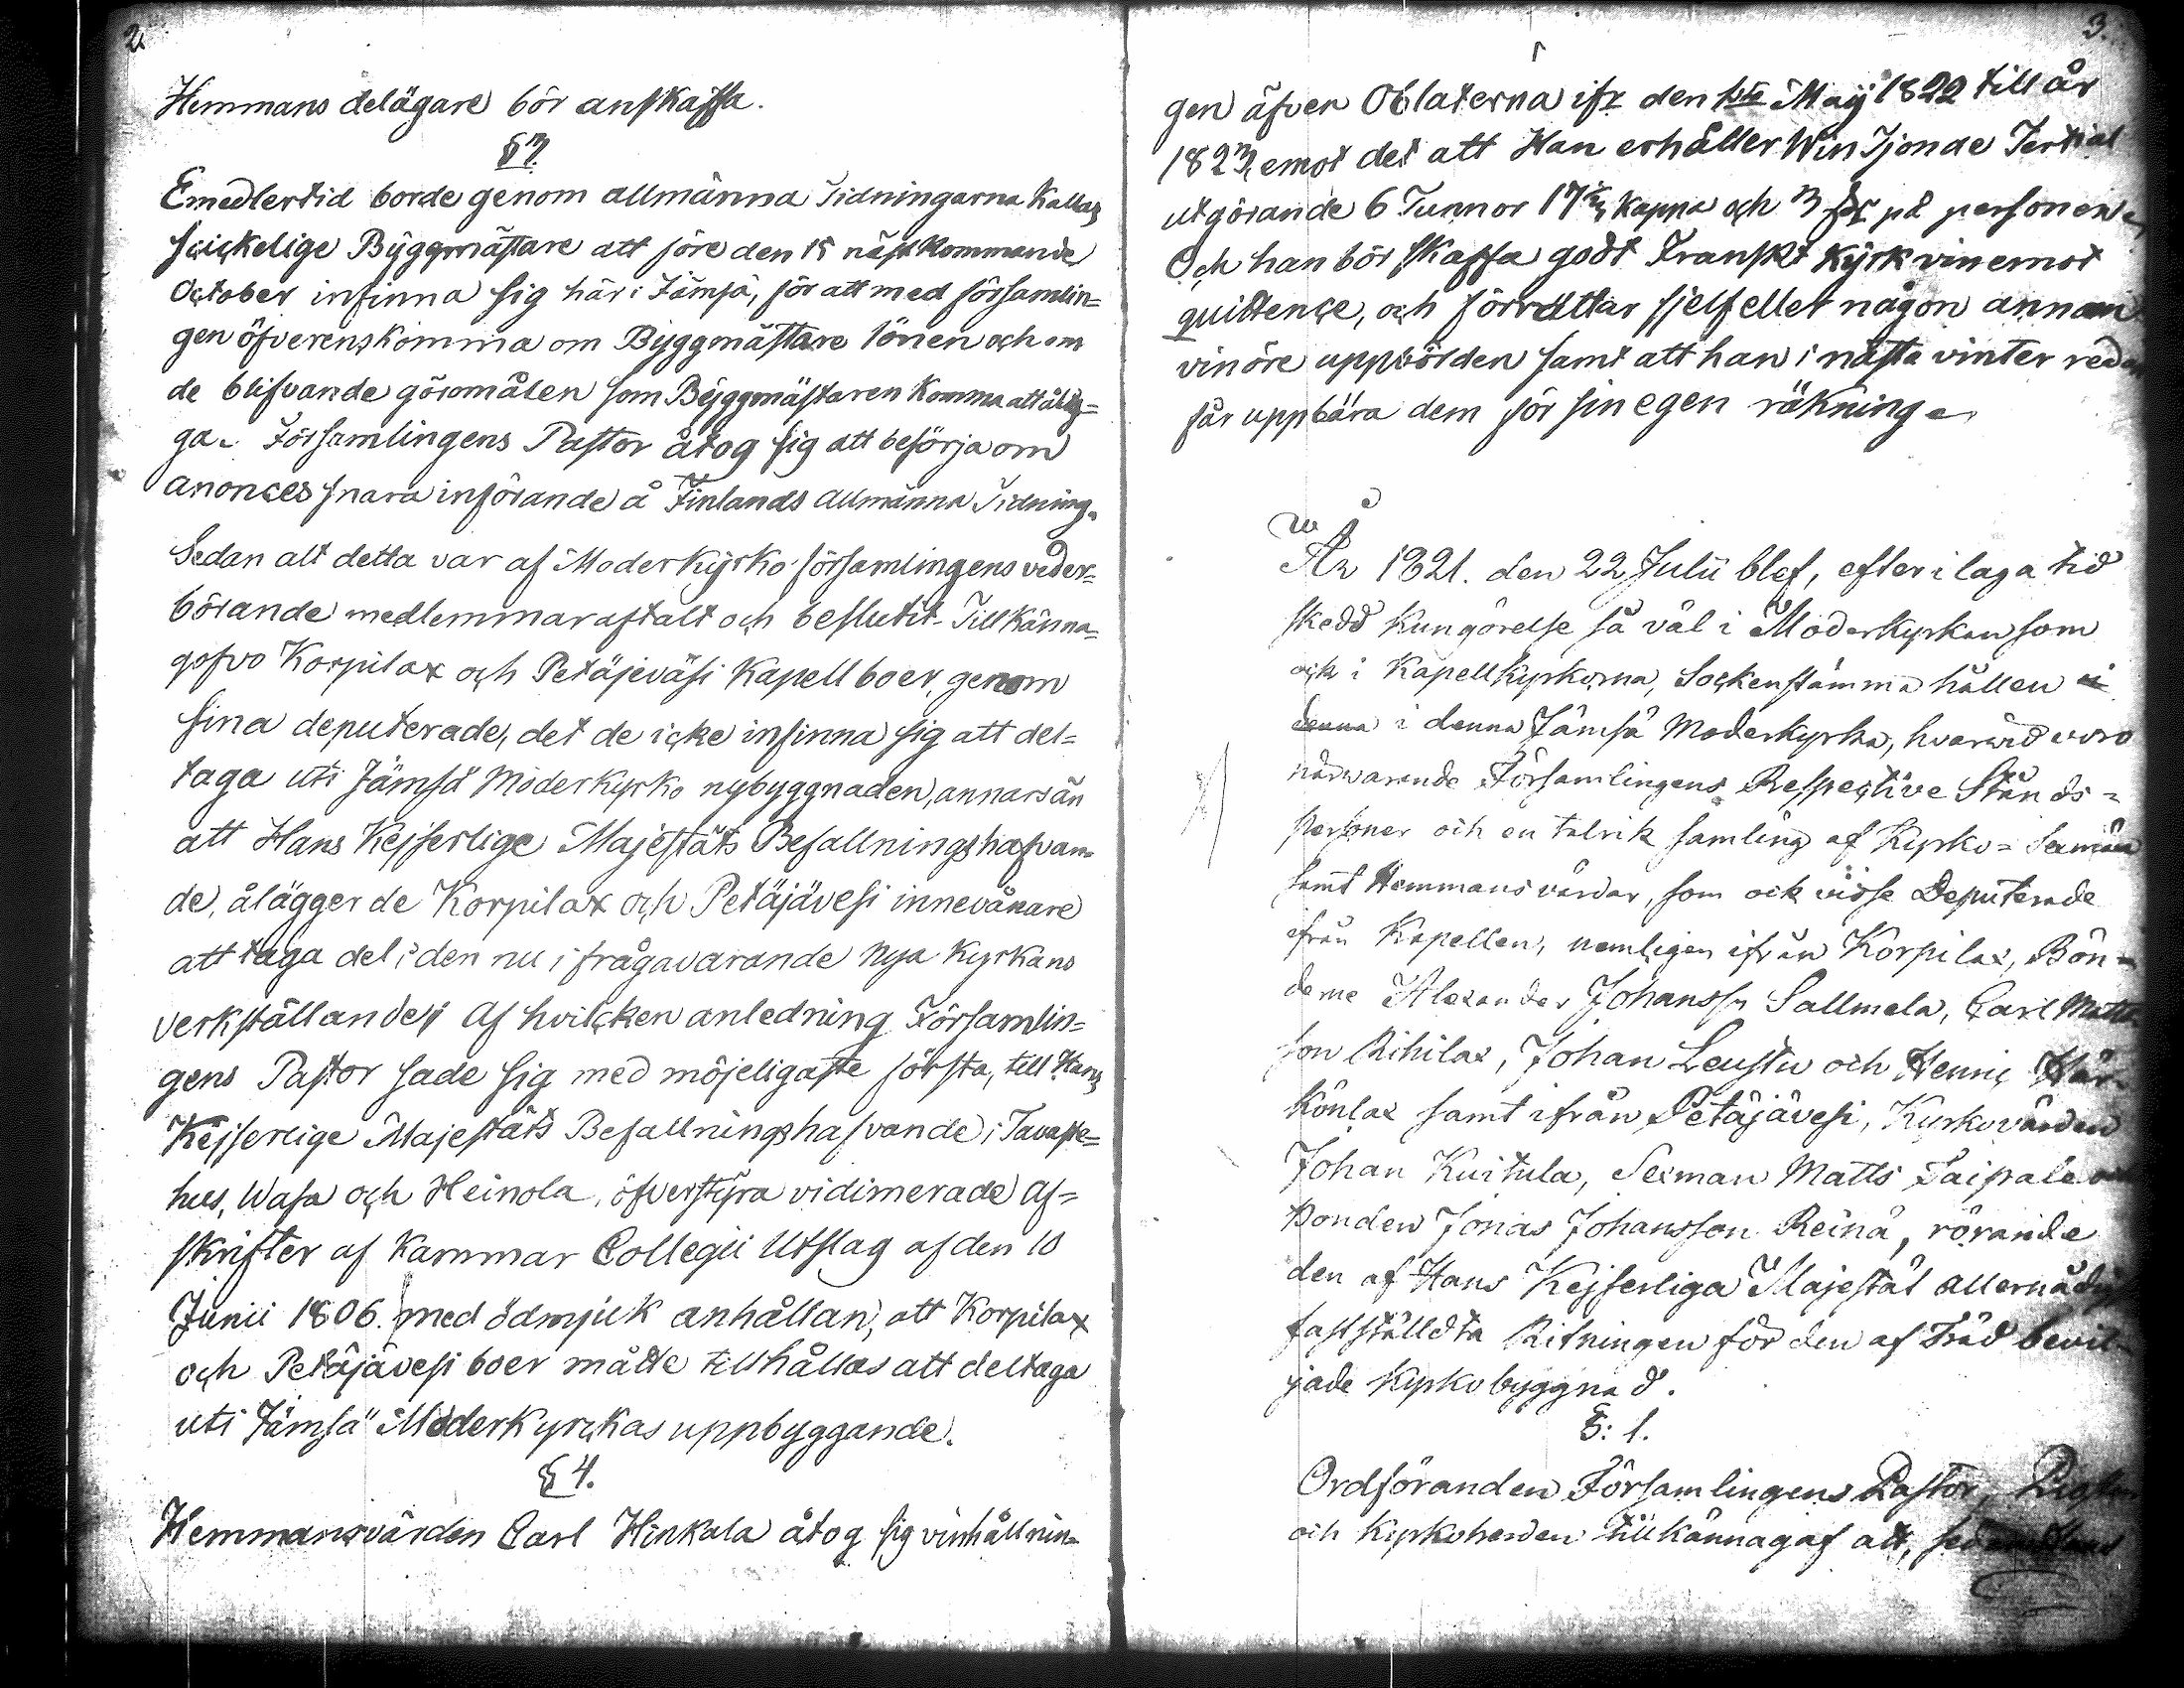 2.
Hemmans delägare bör anskaffa.
§ 3.
Emedlertid borde genom allmänna Tidningarna Kallas
skickelige Byggmästare att före den 15 nästkommande
October infinna sig här i Jämsä, för att med församlin=
gen öfverenskomma om Byggmästare lönen och om
de blifvande göromålen som Byggmästaren Komma att ålig=
ga. Församlingens Pastor åtog sig att besörja om
anonces snara införande å Finlands allmänna Tidning.
Sedan alt detta var af Moderkyrko församlingens veder=
börande medlemmar aftalt och beslutit. Till känna=
gofvo Korpilax och Petäjeväsi Kapellboer, genom
sina deputerade, det de icke infinna sig att del=
taga uti Jämsä Moderkyrko nybyggnaden, annars än
att Hans Kejserlige Majestäts Befallningshafvan=
de, ålägger de Korpilax och Petäjävesi innevånare
att taga del i den nu i frågavarande nya Kyrkans
verkställande; af hvilcken anledning Församlin=
gens Pastor sade sig med möjeligaste första, till Hans
Kejserlige Majestäts Befallningshafvande i Tavaste=
hus, Wasa och Heinola, öfverstyra vidimerade af=
skrifter af Kammar Collegii Utslag af den 10
Junii 1806. med ödmjuk anhållan, att Korpilax
och Petäjävesi boer måtte tillhållas att deltaga
uti Jämsä Moderkyrckas uppbyggande.
§ 4.
Hemmansvärden Carl Hinkala åtog sig vinhållnin=
3.
gen äfven Oblaterna ifr den 1ste Maij 1822 till år
1823, emot det att Han erhåller Win Tjonde Tertial
utgörande 6 Tunnor 17 kappa och 3 på personen
Och han bör skaffa godt Franskt Kyrkvin emot
quittence, och förrättar sjelf eller någon annan
vinöre uppbörden samt att han i nästa vinter redan
får uppbära dem för sin egen räkning.
År 1821. den 22 Julii blef, efter i laga tid
skedd Kungörelse så väl i Moderkyrkan som
ock i Kapellkyrkorna, Sockenstämma hållen i
denna i denna Jämsä Moderkyrka, hvarwid voro
närwarande Församlingens Respective Stånds=
personer och en talrik samling af Kyrko= Sexmän
samt Hemmansvärdar, som ock visse Deputerade
ifrån Kapellen, nemligen ifrån Korpilax, Bön=
derne Alexander Johansson Sallmela, Carl Matts
son Rihilax, Johan Leustu och Henric Här=
könlax samt ifrån Petäjävesi, Kyrkovärden
Johan Kuitula, Sexman Matts Taipale och
Bonden Jonas Johansson Reinä, rörande
den af Hans Kejserliga Majestät allernådigst
fastställdta Ritningen för den af Träd bevil=
jade Kyrkobyggnad.
§: 1.
Ordföranden Församlingens Pastor, Prosten
och Kyrkoherden tillkännagaf att, sedan Hans